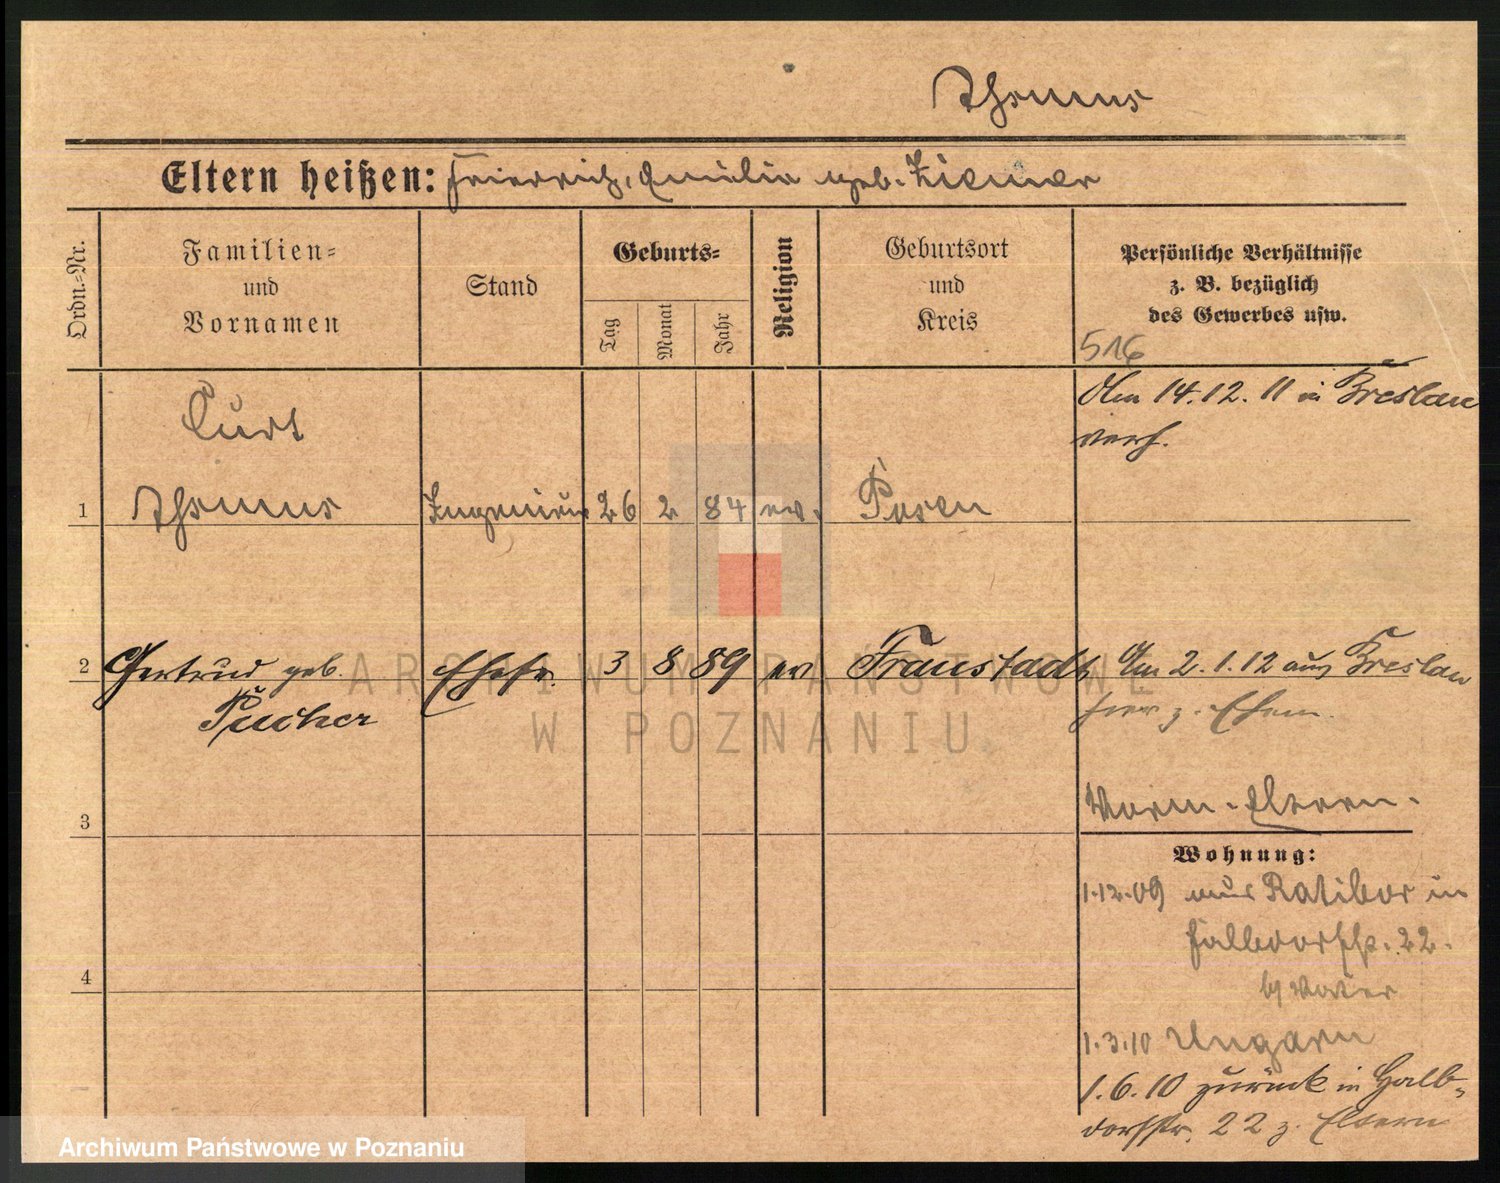 Thomas
Eltern heißen: Friedrich, Emilie geb. Ziemer
Ordn.=Nr.
Familien=
und
Vornamen
Stand
Geburts=
Tag
Monat
Jahr
Religion
Geburtsort
und
Kreis
Persönliche Verhältnisse
z. B. bezüglich
des Gewerbes usw.
516
Curt
1 Thomas Ingenieur 26 2 84 ev. Posen
Am 14.12.11 in Breslau
verh.
2 Gertrud geb. Ehefr. 3 8 89 ev Fraustadt Am 2.1.12 aus Breslau
Pucher
hier z. Ehem.
3
4
Eltern.
Wohnung:
1.12.09 aus Ratibor in
Halbdorfstr. 22.
b/ Vater
1.3.10 Ungarn
1.6.10 zurück in Halb-
dorfstr. 22 z. Eltern
ARCHIWUM PAŃSTWOWE
W POZNANIU
Archiwum Państwowe w Poznaniu